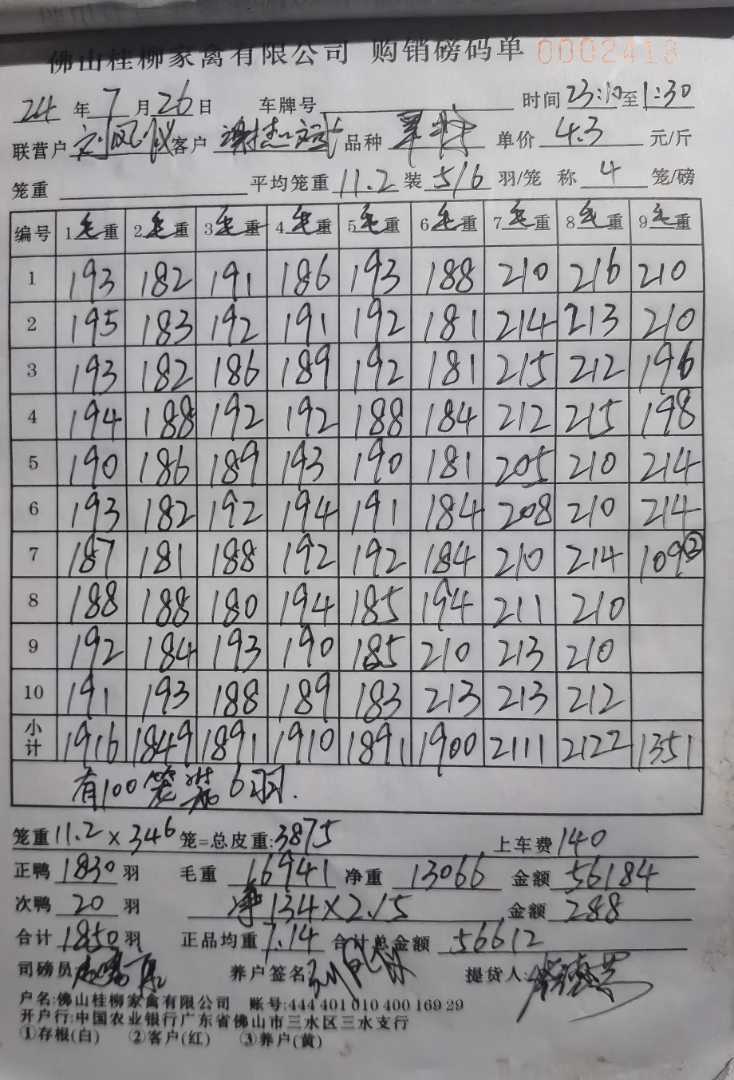 佛山桂柳家禽有限公司 购销磅码单 0002413
24 年 7 月 26 日 车牌号 时间 23:10 至 1:30
联营户 刘凤仪 客户 品种 单价 4.3 元/斤
笼重 平均笼重 11.2 装 5/6 羽/笼 称 4 笼/磅
编号 1毛重 2毛重 3毛重 4毛重 5毛重 6毛重 7毛重 8毛重 9毛重
1 193 182 191 186 193 188 210 216 210
2 195 183 192 191 192 181 214 213 210
3 193 182 186 189 192 181 215 212 196
4 194 188 192 192 188 184 212 215 198
5 190 186 189 193 190 181 205 210 214
6 193 182 192 194 191 184 208 210 214
7 187 181 188 192 192 184 210 214 109②
8 188 188 180 194 185 194 211 210
9 192 184 193 190 185 210 213 210
10 191 193 188 189 183 213 213 212
小计 1916 1849 1891 1910 1891 1900 2111 2122 1351
有100笼装6羽.
笼重 11.2×346 笼=总皮重:3875 上车费 140
正鸭 1830 羽 毛重 16941 净重 13066 金额 56184
次鸭 20 羽 净134×2.15 金额 288
合计 1850 羽 正品均重 7.14 合计总金额 56612
司磅员 养户签名 刘凤仪 提货人
户名:佛山桂柳家禽有限公司 账号:444 401 010 400 169 29
开户行:中国农业银行广东省佛山市三水区三水支行
①存根(白) ②客户(红) ③养户(黄)